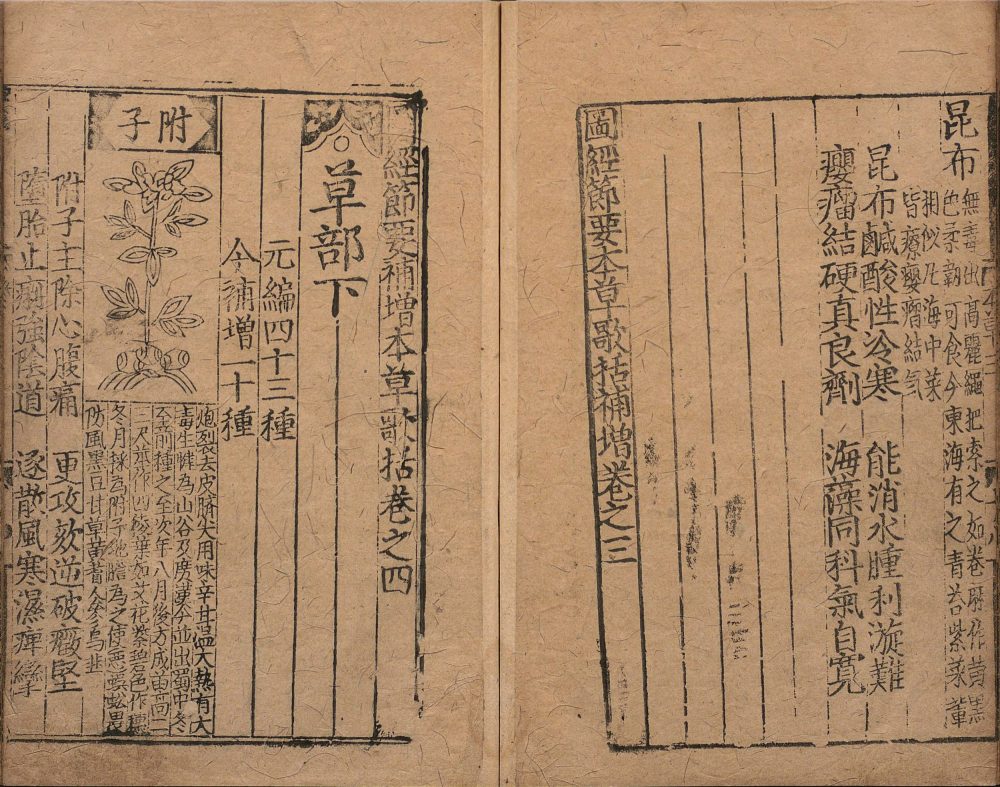 昆布
無毒出高麗繩把索之如卷麻作黃黑
色柔韌可食今東海有之青苔紫菜輩
相似凡海中菜
皆療癭瘤結氣
昆布鹹酸性冷寒 能消水腫利漩難
癭瘤結硬真良劑 海藻同科氣自寬
圖經節要本草歌括補增卷之三
圖經節要補增本草歌括卷之四
草部下
元編四十三種
今補增一十種
附子
炮裂去皮臍尖用味辛甘溫大熱有大
毒生犍為山谷及廣漢今並出蜀中冬
至前種之至次年八月後方成苗高二
三尺莖作四稜葉如艾花紫碧色作穗
冬月採為附子地膽為之使惡蜈蚣畏
防風黑豆甘草黃耆人參烏韭
附子主除心腹痛 更攻欬逆破癥堅
墮胎止痢強陰道 逐散風寒濕痺攣